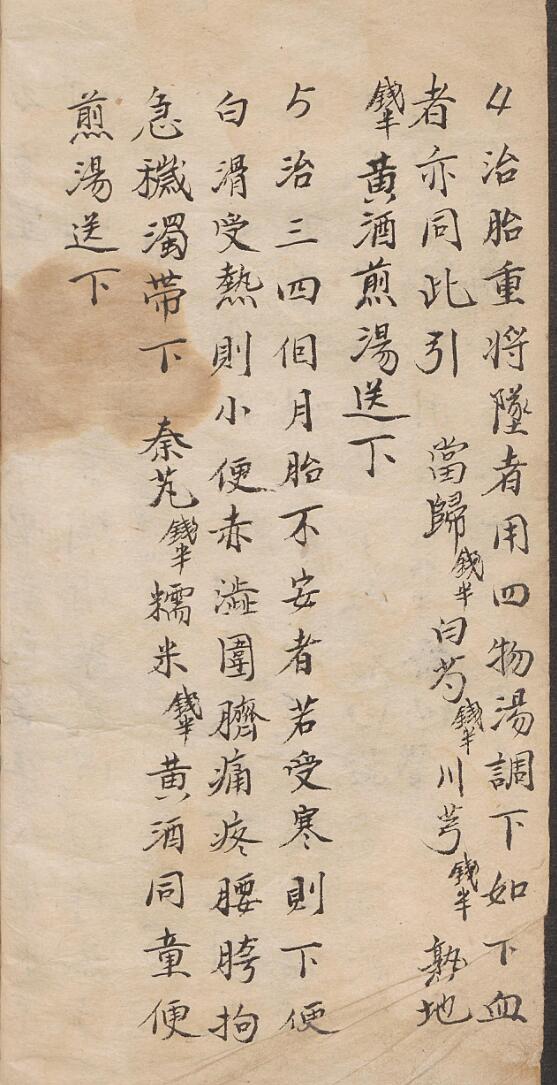 4治胎重将墜者用四物湯調下如下血
者亦同此引 當歸錢半白芍錢半川芎錢半 熟地
錢半黄酒煎湯送下
5治三四個月胎不安者若受寒則下便
白滑受熱則小便赤澁圍臍痛疼腰胯拘
急穢濁帶下 秦艽錢半糯米錢半黄酒同童便
煎湯送下